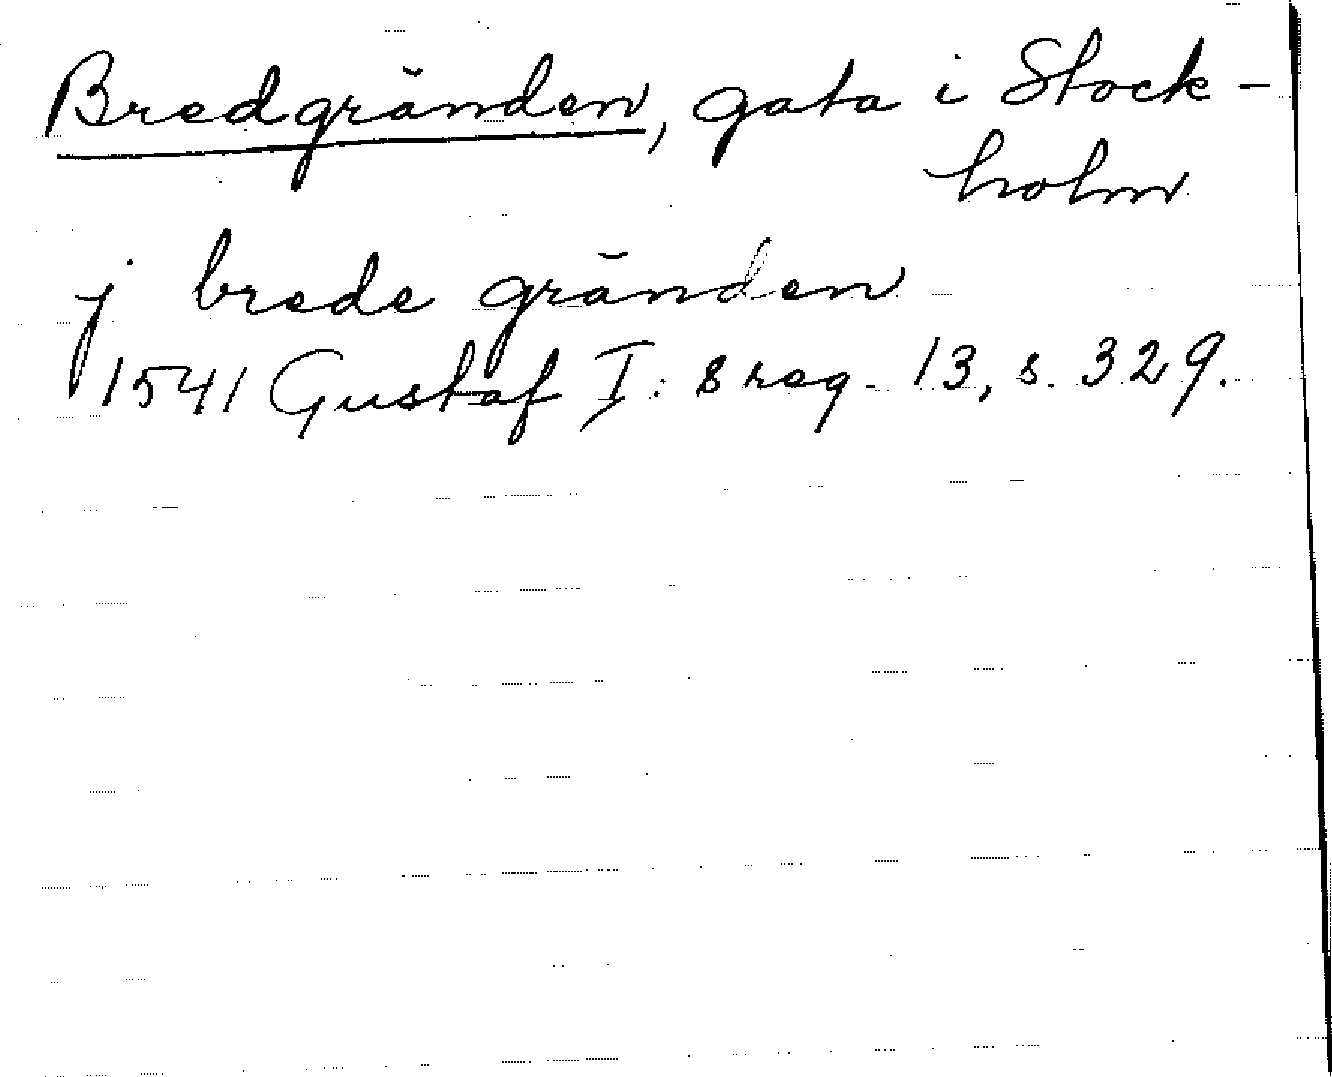 Bredgränden, gata i Stock-
holm
j brede gränden
1541 Gustaf I:s reg. 13, s. 329.